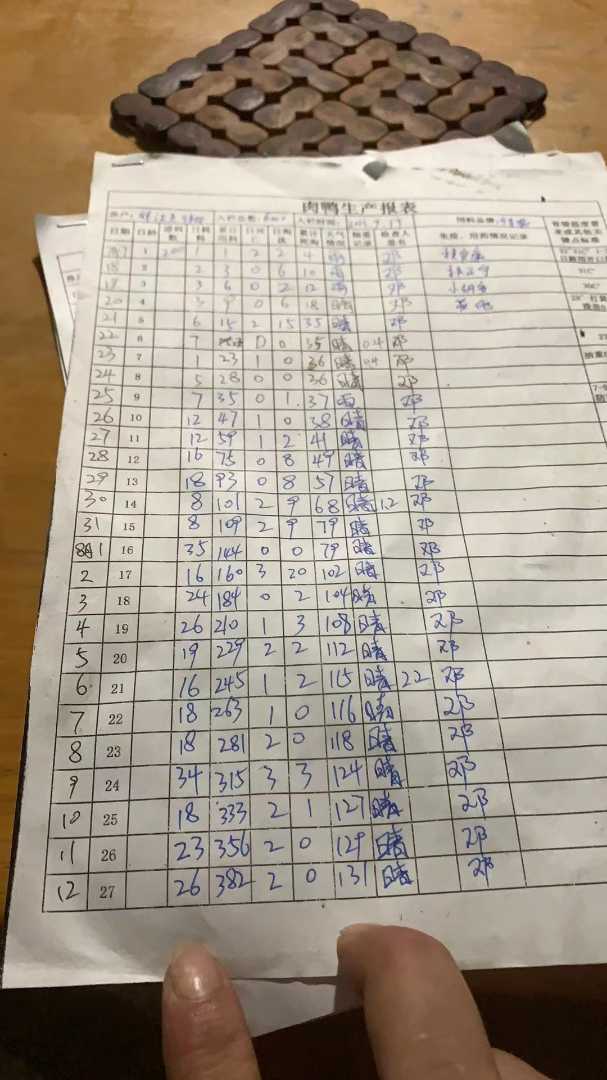 肉鸭生产报表
入栏总数: 入栏时间: 饲料品牌:
日期 日龄 进料数 日耗料 累计用料 日死亡 日淘汰 累计死淘 天气情况 抽重记录 检查人签名 免疫、用药情况记录
1 1 1 2 2 4 雨 邓
18 2 2 3 0 6 10 雨 邓
19 3 3 6 0 2 12 雨 邓
20 4 3 9 0 6 18 晴 邓
21 5 6 15 2 15 35 晴 邓
22 6 7 0 0 35 晴 0.4 邓
23 7 1 23 1 0 36 晴 0.4 邓
24 8 5 28 0 0 36 晴 邓
25 9 7 35 0 1 37 雨 邓
26 10 12 47 1 0 38 晴 邓
27 11 12 59 1 2 41 晴 邓
28 12 16 75 0 8 49 晴 邓
29 13 18 93 0 8 57 晴 邓
30 14 8 101 2 9 68 晴 1.2 邓
31 15 8 109 2 9 79 晴 邓
8月1 16 35 144 0 0 79 晴 邓
2 17 16 160 3 20 102 晴 邓
3 18 24 184 0 2 104 晴 邓
4 19 26 210 1 3 108 晴 邓
5 20 19 229 2 2 112 晴 邓
6 21 16 245 1 2 115 晴 2.2 邓
7 22 18 263 1 0 116 晴 邓
8 23 18 281 2 0 118 晴 邓
9 24 34 315 3 3 124 晴 邓
10 25 18 333 2 1 127 晴 邓
11 26 23 356 2 0 129 晴 邓
12 27 26 382 2 0 131 晴 邓